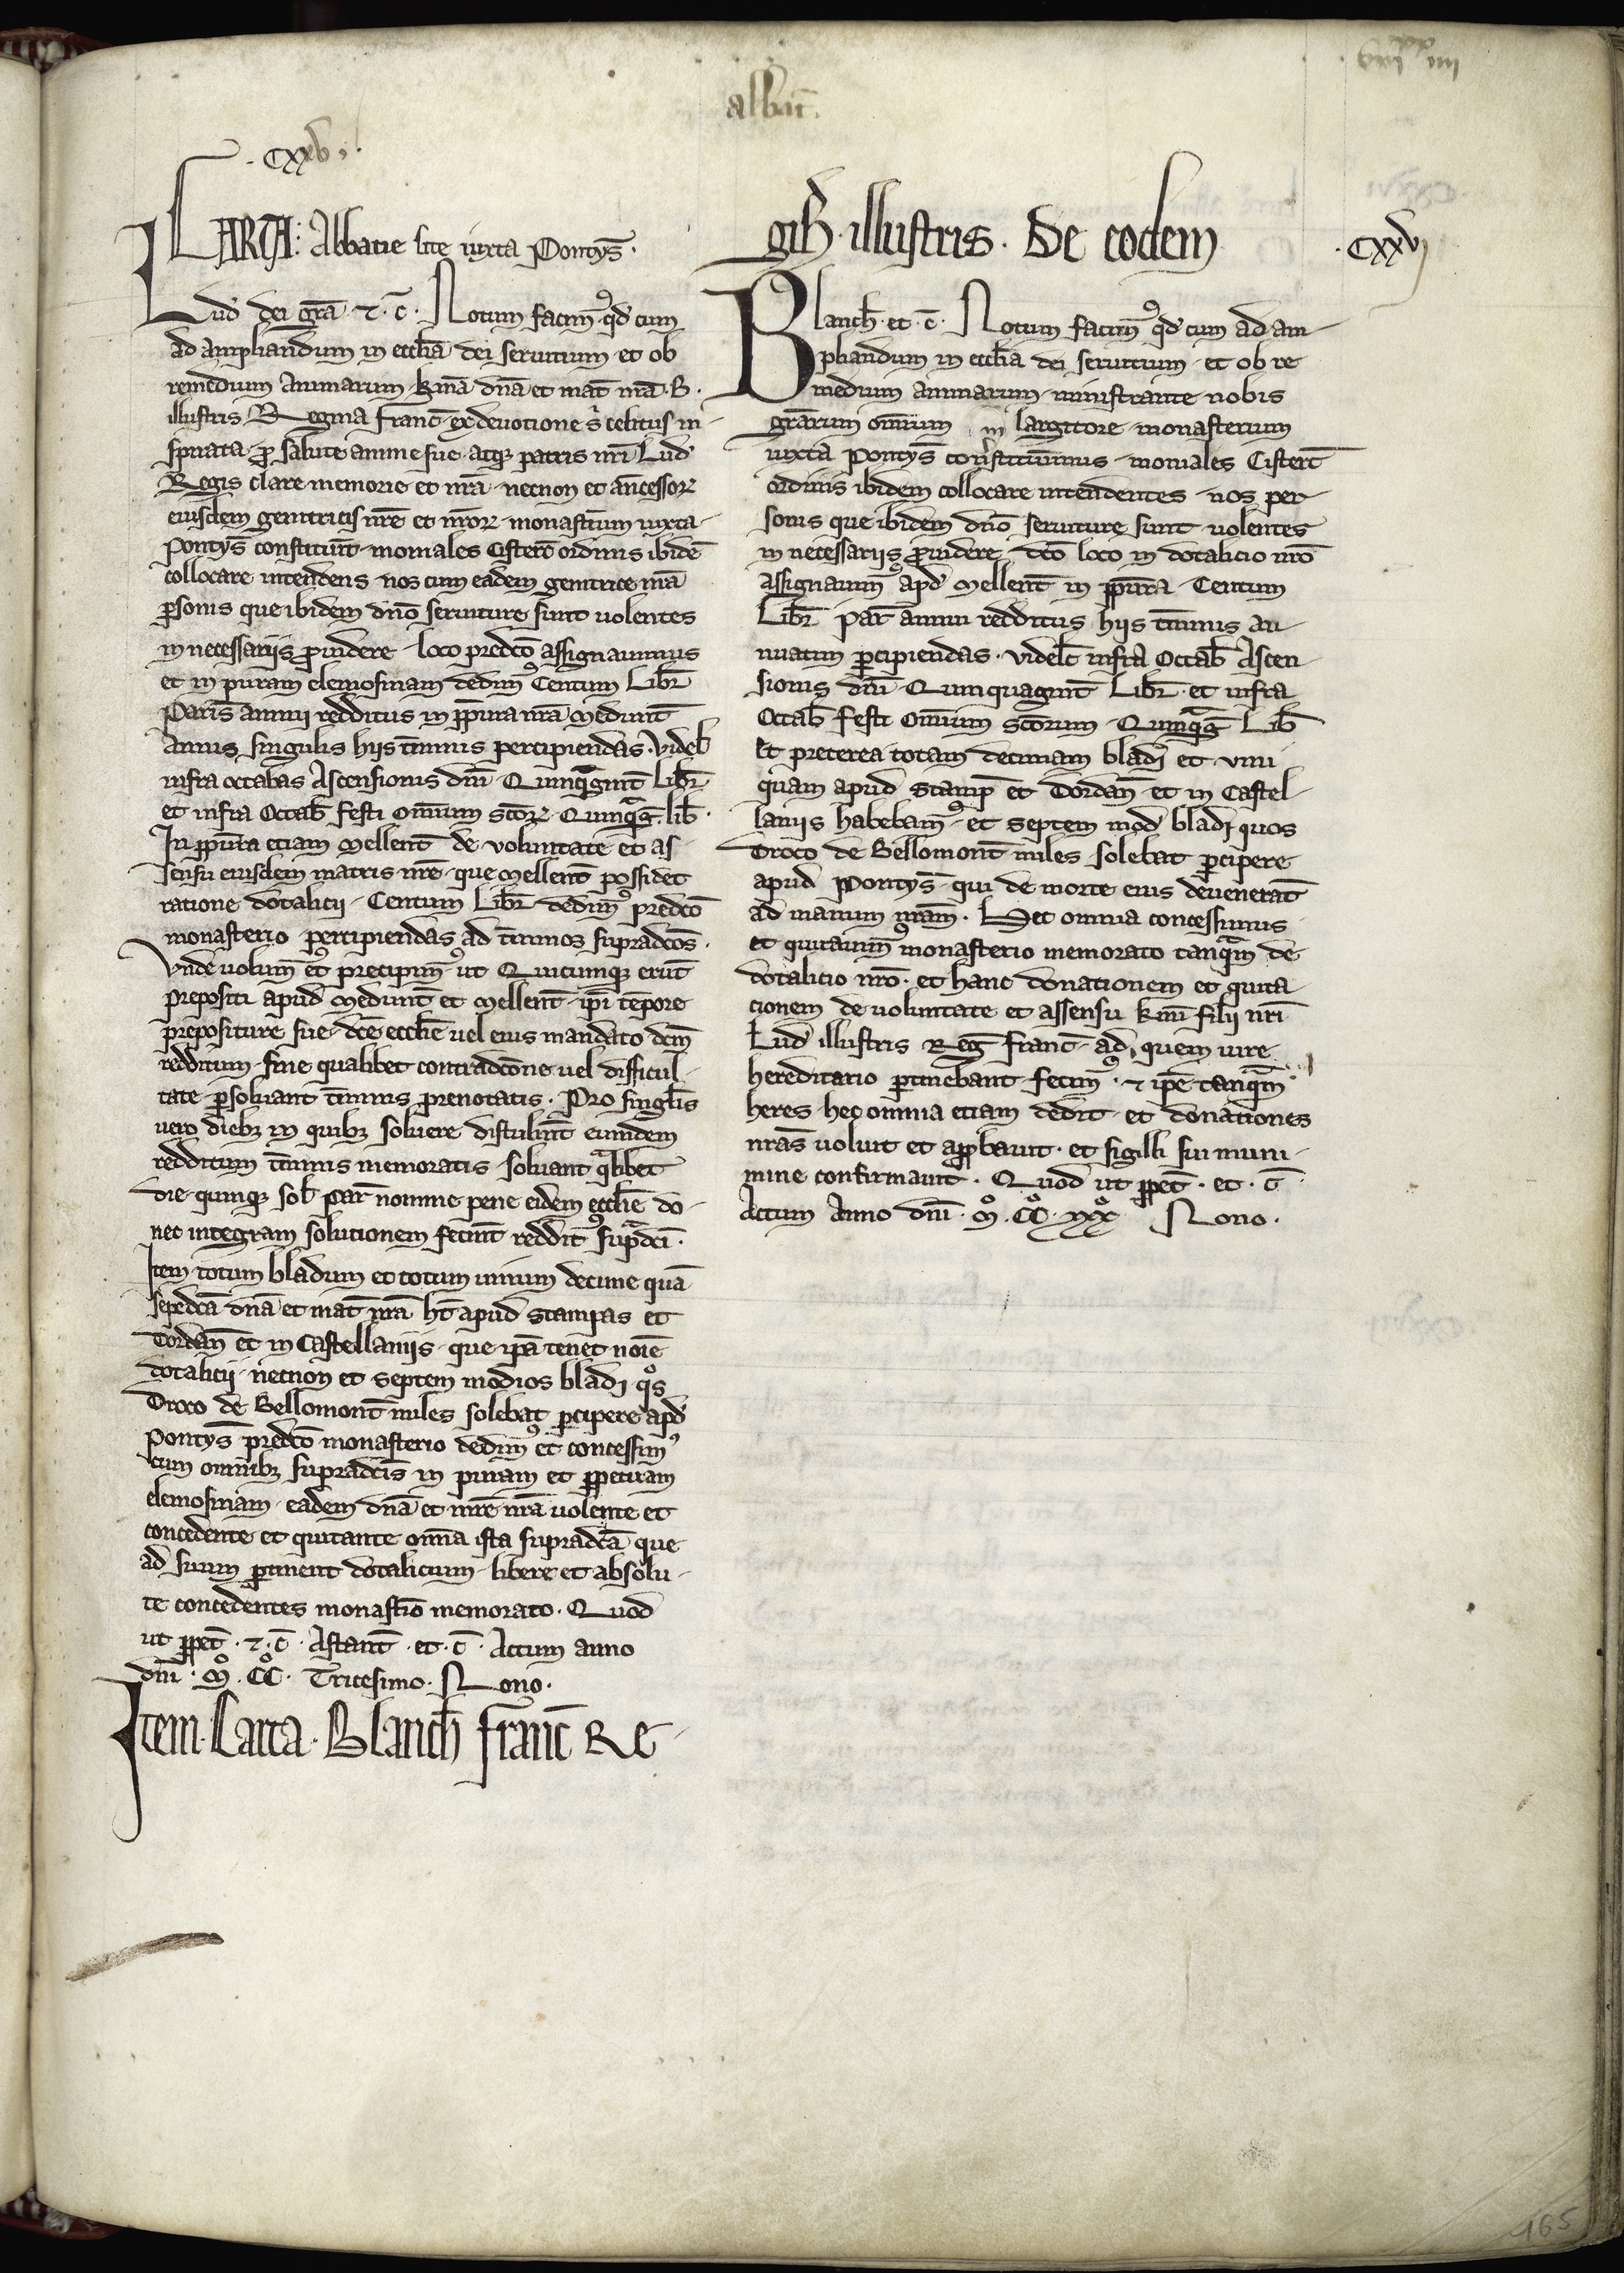 abbat̄.
. cxxv .
CARTA: Abbatie site iuxta Pontys̄.
Lud dei grā ⁊ . c̄ . Notum facimꝰ qd̄ cum
ad ampliandum in eccl̄ia dei seruitium et ob
remedium animarum kmā dn̄a et mat̄ nr̄a . B .
illustris Regina franc̄ ex deuotione ẜ celitus in
spirata ꝓ salute anime sue atqꝫ patris nr̄i Lud
Regis clare memorie et nr̄a necnon et ancessoꝝ
eiusdem genitricis nr̄e et nr̄oꝝ monast̄ium iuxta
Pontys̄ constituit̄ moniales Cisterc̄ ordinis ibidē
collocare intendens nos cum eadem genitrice nr̄a
ꝑsonis que ibidem dn̄o seruiture sunt uolentes
in necessariis ꝓuidere loco predc̄o assignauimus
et in puram elemosinam dedimꝰ Centum Libr̄
Paris̄ annui redditus in p̄p̄itura nr̄a Medunt̄
annis singulis hiis t̄minis percipiendas . videl̄
infra octabas Ascensionis dn̄i Quinqᵃgint̄ Libr̄
et infra Octab̄ festi omnium sc̄oꝝ Quinqᵃḡ lib̄ .
In p̄p̄itura etiam Mellent̄ de voluntate et as
sensu eiusdem matris nr̄e que Mellent̄ possidet
ratione dotalicii Centum Libr̄ dedimꝰ predc̄o
monasterio percipiendas ad t̄minos supradc̄os .
Vnde uolumꝰ et precipimꝰ ut Quicumqꝫ erūt
prepositi apud Medunt̄ et Mellent̄ ip̄i tēpore
prepositure sue dc̄e eccl̄ie uel eius mandato dc̄m
redditum sine qualibet contradc̄one uel difficul
tate ꝑsoluant t̄minis prenotatis . Pro singl̄is
uero diebꝫ in quibꝫ soluere distulint̄ eumdem
redditum t̄minis memoratis soluant qᵃlibet
die quinqꝫ sol̄ par̄ nomine pene eidem eccl̄ie do
nec integram solutionem fecint̄ redditꝰ supᵃdc̄i .
Item totum bladum et totum uinum decime quā
sepedc̄a dn̄a et mat̄ nr̄a ht̄ apud Stampas et
Dordan̄ et in Castellaniis que ip̄a tenet noīe
dotalicii necnon et septem modios bladi qͦs
Droco de Bellomont̄ miles solebat ꝑcipere apd̄
Pontys̄ predc̄o monasterio dedimꝰ et concessimꝰ
cum omnibꝫ supradc̄is in puram et ꝑpetuam
elemosinam eadem dn̄a et mr̄e nr̄a uolente et
concedente et quitante om̄ia ista supradc̄a que
ad suum ꝑtinent dotalicium libere et absolu
te concedentes monast̄io memorato . Quod
ut ꝑpet̄ . ⁊ . c̄ . Astant̄ . et . c̄ . Actum anno
dn̄i . Mͦ . CCͦ . Tricesimo . Nono .
Item . Carta . Blanch̄ franc̄ Re
gin̄ . illustris . De eodem . cxxvj
Blanch̄ . et . c̄ . Notum facimꝰ qd̄ cum ad am
pliandum in eccl̄ia dei seruitium et ob re
medium animarum ministrante nobis
gr̄arum omnium largitore monasterium
iuxta Pontys̄ construi statuimus moniales Cisterc̄
ordinis ibidem collocare intendentes nos per
sonis que ibidem dn̄o seruiture sunt uolentes
in necessariis ꝓuidere dc̄o loco in dotalicio nr̄o
assignauimꝰ apd̄ Mellent̄ in p̄p̄itura Centum
Libr̄ par̄ annui redditus hiis t̄minis an
nuatim ꝑcipiendas . videlc̄ infra Octab̄ Ascen
sionis dn̄i Quinquagint̄ Libr̄ . et infra
Octab̄ festi omnium sc̄orum Quinqᵃḡ Lib̄
Et preterea totam decimam bladi et vini
quam apud Stamp̄ et Dordan̄ et in Castel
laniis habebamꝰ et septem mod̄ bladi quos
Droco de Bellomont̄ miles solebat ꝑcipere
apud Pontys̄ qui de morte eius deuenerat̄
ad manum nr̄am . Hec omnia concessimus
et quitauimꝰ monasterio memorato tanqᵃm de
dotalicio nr̄o . et hanc donationem et quita
cionem de uoluntate et assensu kmi filii nr̄i
Lud̄ illustris Reḡ franc̄ ad quem iure
hereditario ꝑtinebant fecimꝰ . ⁊ ip̄e tanqᵃm
heres hec omnia etiam dedit et donationes
nr̄as uoluit et approbauit . et sigilli sui muni
mine confirmauit . Quod ut ꝑpet̄ . et . c̄
Actum Anno dn̄i . Mͦ . CCͦ . xxxͦ Nono .
165